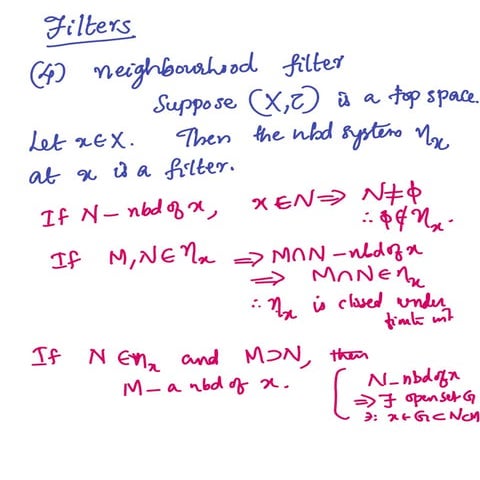 Filters
(4) neighbourhood filter
Suppose (X,τ) is a top space.
Let x∈X. Then the nbd system η_x
at x is a filter.
If N – nbd of x, x∈N ⇒ N≠ϕ
∴ ϕ∉η_x.
If M,N∈η_x ⇒ M∩N – nbd of x
⇒ M∩N∈η_x
∴ η_x is closed under
finite int
If N∈η_x and M⊃N, then
M – a nbd of x.
N – nbd of x
⇒ ∃ open set G
∋: x∈G⊂N⊂M